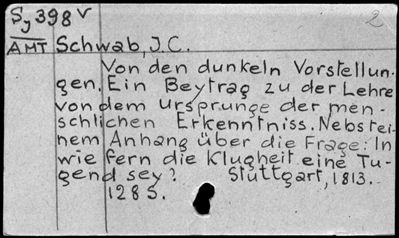 Sj 398 v
2
AMT Schwab, J.C.
Von den dunkeln Vorstellun-
gen. Ein Beytrag zu der Lehre
von dem Ursprunge der men-
schlichen Erkenntniss. Nebst ei-
nem Anhang über die Frage: In
wie fern die Klugheit eine Tu-
gend sey? Stuttgart, 1813.
128 S.